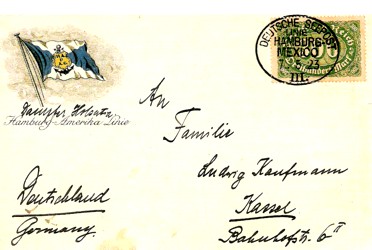 DEUTSCHE SEEPOST
LINIE
HAMBURG-
MEXICO
23
III.
Reich
Mark
Dampfer Holsatia
Hamburg-Amerika Linie
An
Familie
Ludwig Kaufmann
Kassel
Bahnhofstr. 6 II
Deutschland
Germany.